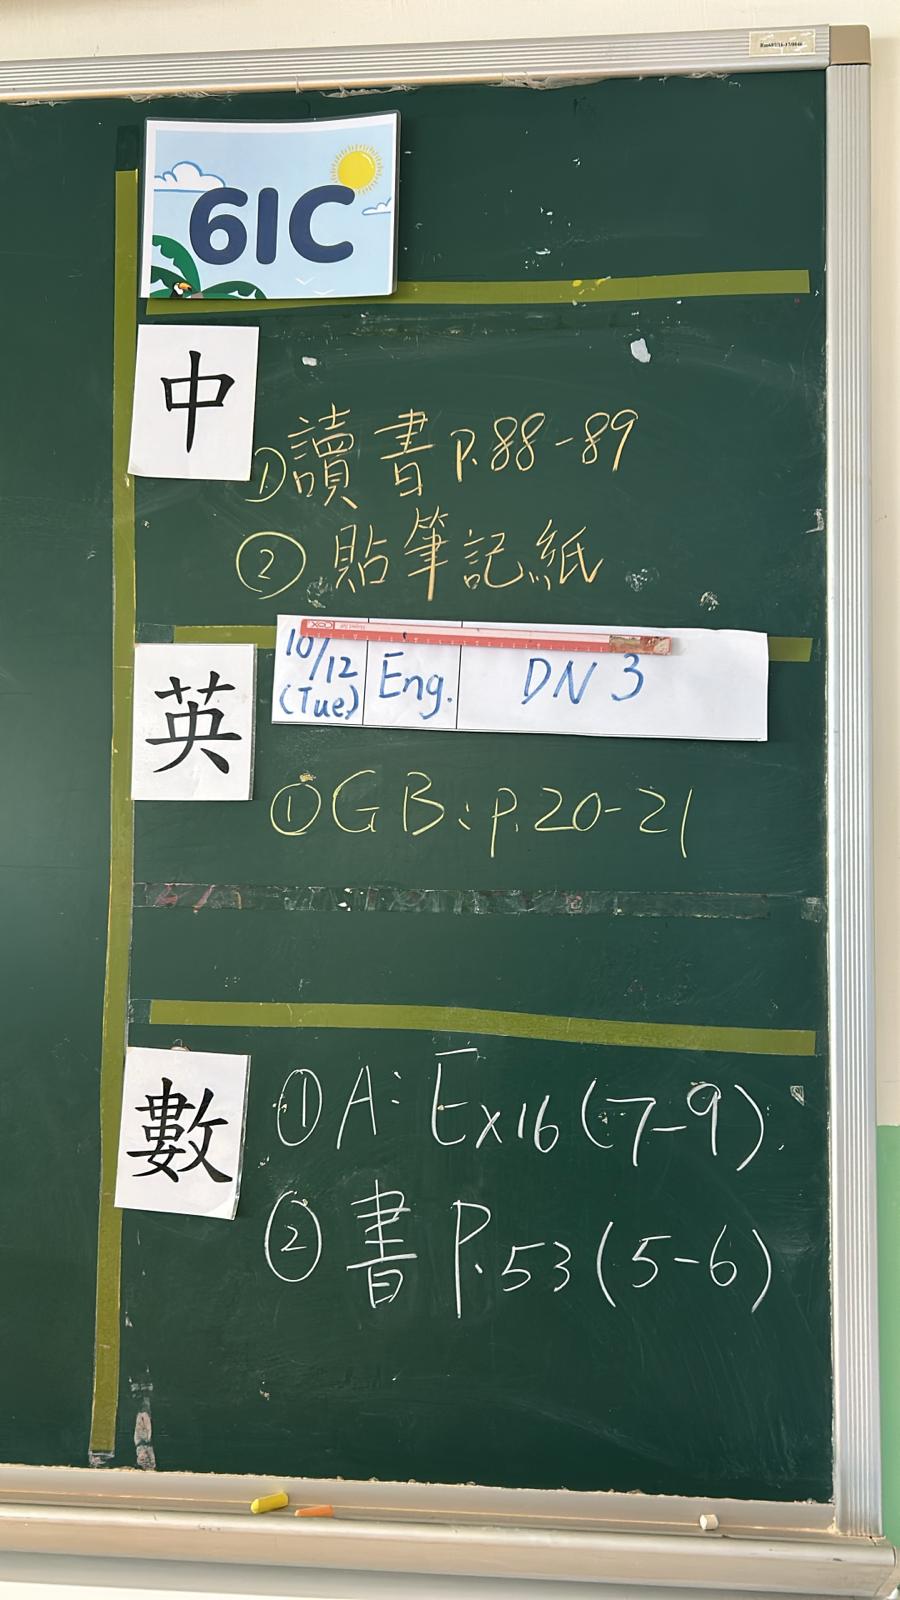 61C
中
①讀書 P.88-89
②貼筆記紙
英
10/12 (Tue) Eng. DN 3
①GB: p.20-21
數
①A: Ex16 (7-9)
②書 P.53 (5-6)